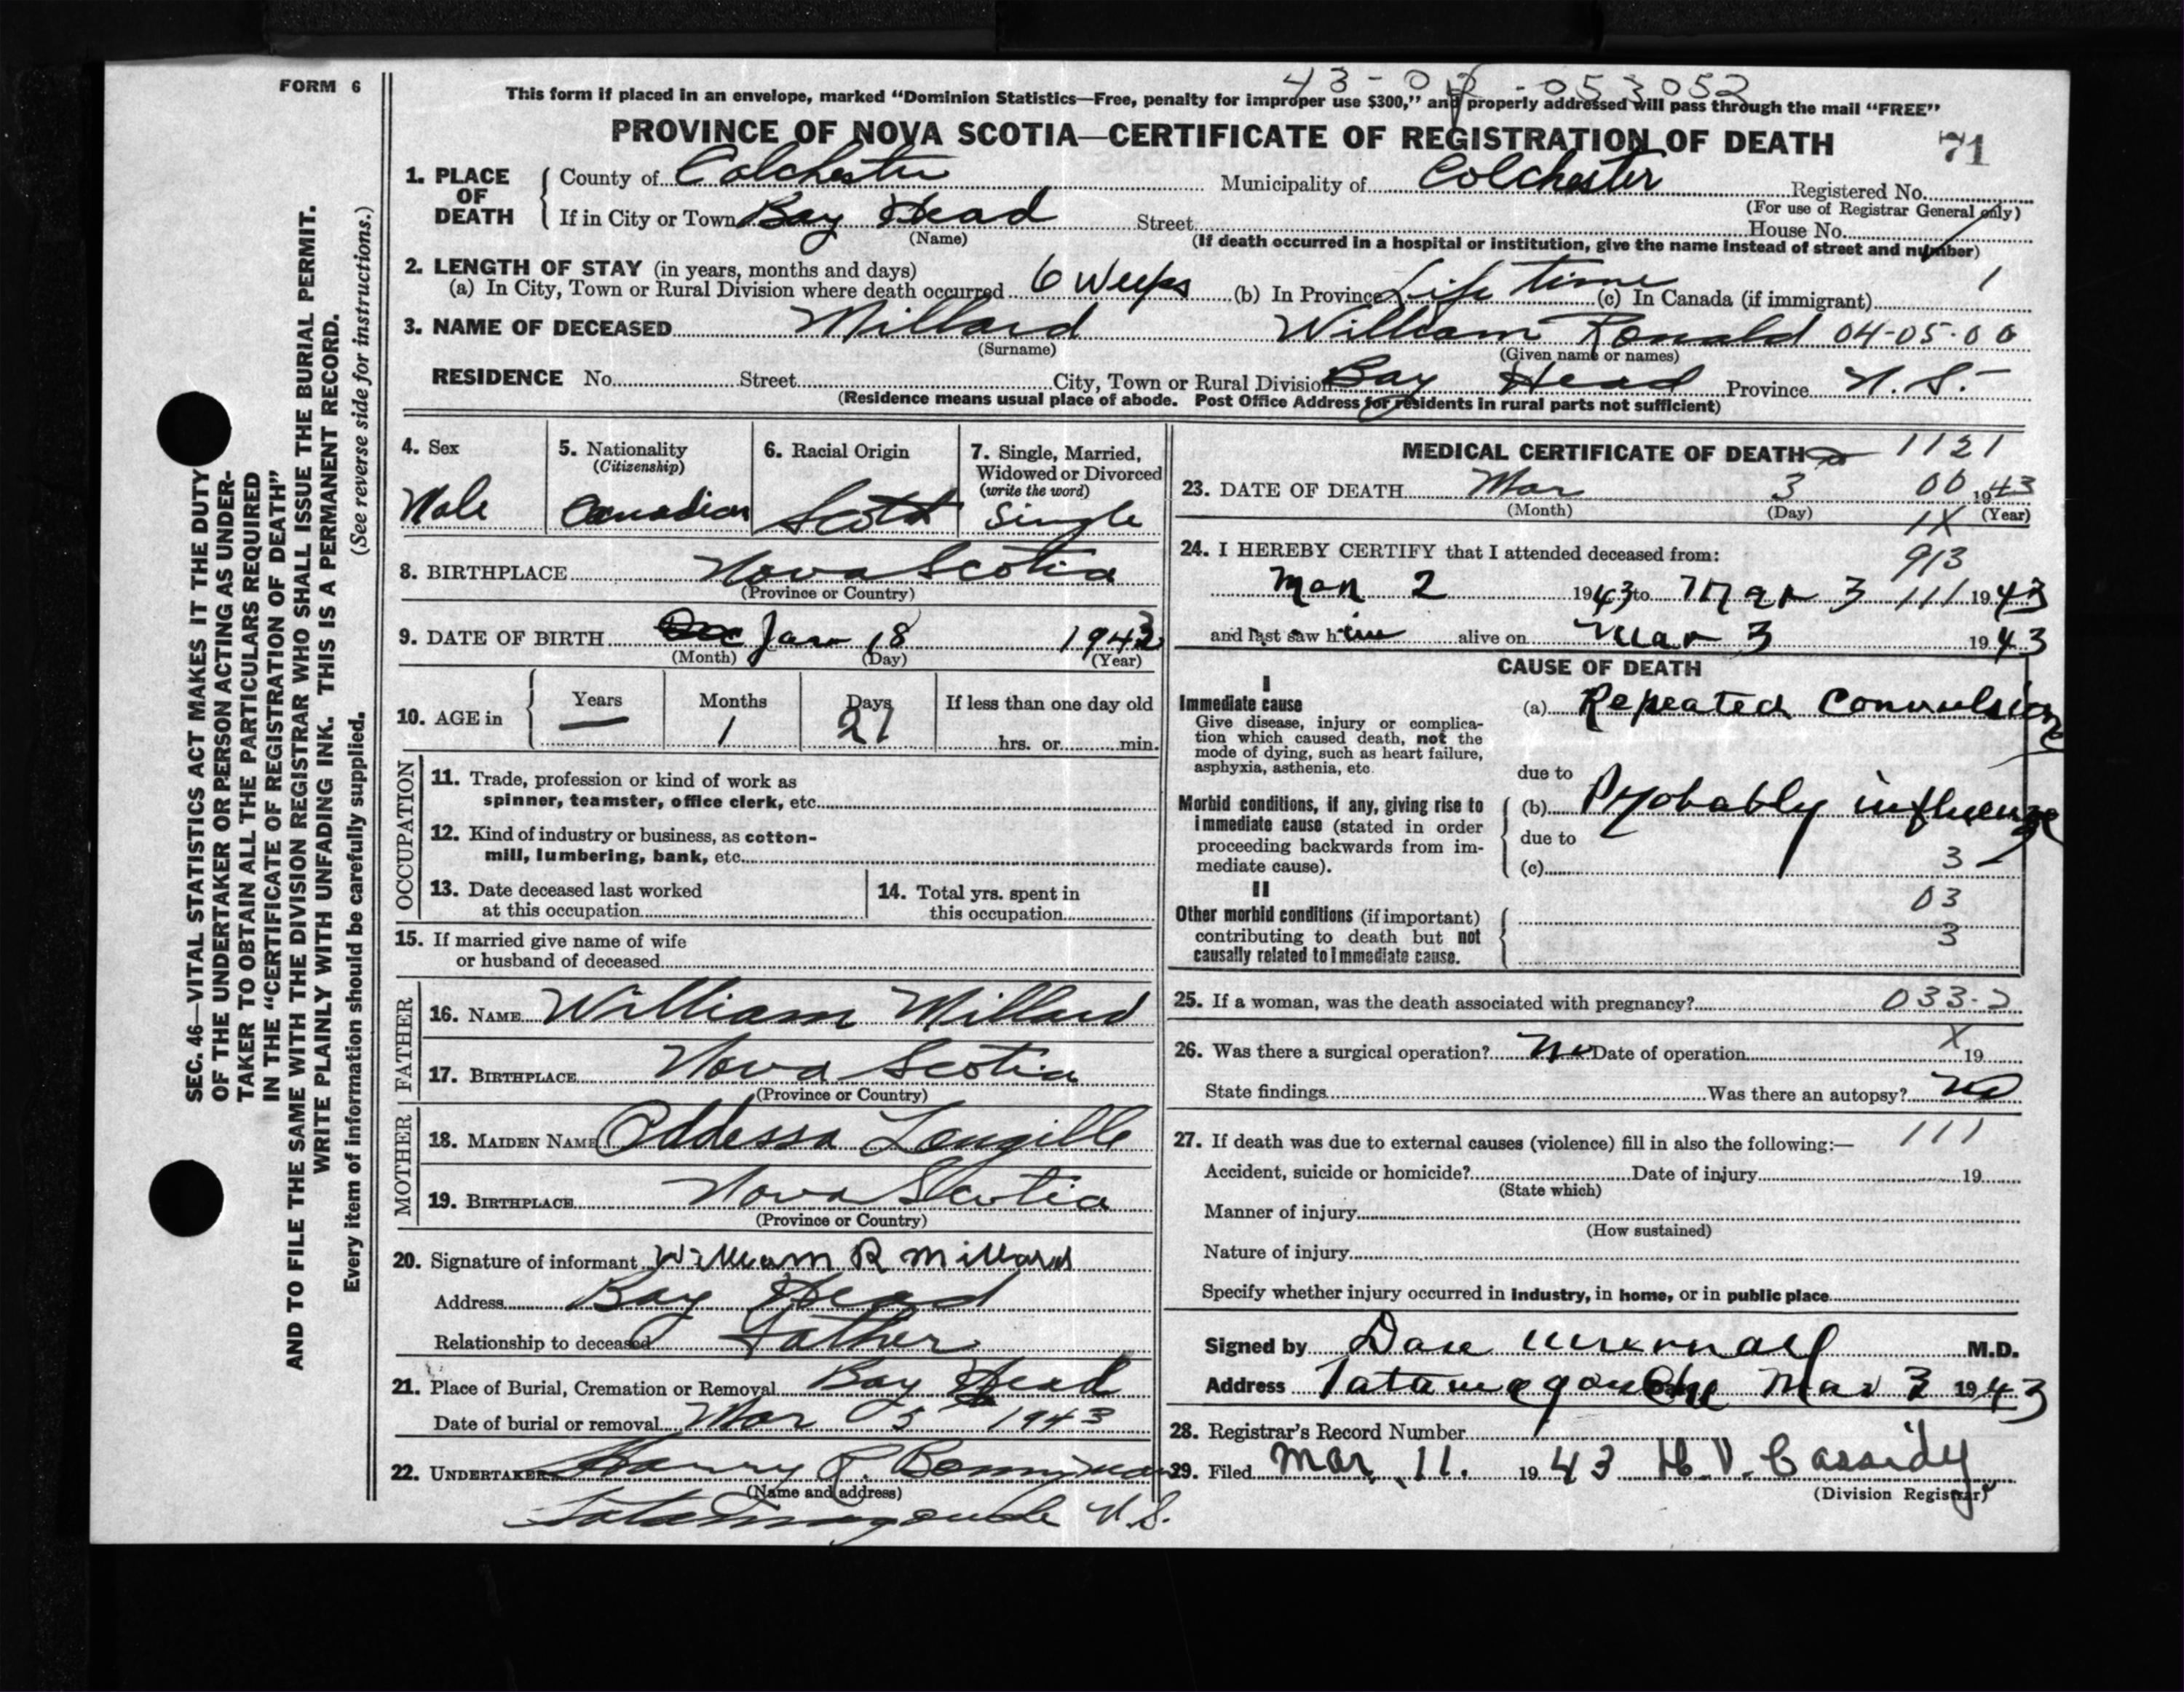 43-04-053052
FORM 6
This form if placed in an envelope, marked "Dominion Statistics—Free, penalty for improper use $300," and properly addressed will pass through the mail "FREE"
PROVINCE OF NOVA SCOTIA—CERTIFICATE OF REGISTRATION OF DEATH 71
1. PLACE OF DEATH
County of Colchester Municipality of Colchester Registered No.
(For use of Registrar General only)
If in City or Town Bay Head Street House No.
(Name) (If death occurred in a hospital or institution, give the name instead of street and number)
2. LENGTH OF STAY (in years, months and days)
(a) In City, Town or Rural Division where death occurred 6 Weeks (b) In Province Life time (c) In Canada (if immigrant) 1
3. NAME OF DECEASED Millard William Ronald 04-05-00
(Surname) (Given name or names)
RESIDENCE No. Street City, Town or Rural Division Bay Head Province N.S.
(Residence means usual place of abode. Post Office Address for residents in rural parts not sufficient)
4. Sex
Male
5. Nationality
(Citizenship)
Canadian
6. Racial Origin
7. Single, Married,
Widowed or Divorced
(write the word)
Single
8. BIRTHPLACE Nova Scotia
(Province or Country)
9. DATE OF BIRTH Jan 18 1943
(Month) (Day) (Year)
10. AGE in
Years —
Months 1
Days 21
If less than one day old
hrs. or min.
OCCUPATION
11. Trade, profession or kind of work as
spinner, teamster, office clerk, etc.
12. Kind of industry or business, as cotton-
mill, lumbering, bank, etc.
13. Date deceased last worked
at this occupation
14. Total yrs. spent in
this occupation
15. If married give name of wife
or husband of deceased
FATHER
16. NAME William Millard
17. BIRTHPLACE Nova Scotia
(Province or Country)
MOTHER
18. MAIDEN NAME Oddessa Langille
19. BIRTHPLACE Nova Scotia
(Province or Country)
20. Signature of informant William R Millard
Address Bay Head
Relationship to deceased Father
21. Place of Burial, Cremation or Removal Bay Head
Date of burial or removal Mar 5 1943
22. UNDERTAKER Harry R. Bonnyman
(Name and address)
Tatamagouche N.S.
MEDICAL CERTIFICATE OF DEATH 1121
23. DATE OF DEATH Mar 3 00 1943
(Month) (Day) (Year)
1X
24. I HEREBY CERTIFY that I attended deceased from:
913
Mar 2 1943 to Mar 3 111 1943
and last saw him alive on Mar 3 1943
CAUSE OF DEATH
I
Immediate cause
Give disease, injury or complica-
tion which caused death, not the
mode of dying, such as heart failure,
asphyxia, asthenia, etc.
(a) Repeated Convulsions
due to
Morbid conditions, if any, giving rise to
immediate cause (stated in order
proceeding backwards from im-
mediate cause).
(b) Probably influenza
due to
(c) 3
II
Other morbid conditions (if important)
contributing to death but not
causally related to immediate cause.
03
3
25. If a woman, was the death associated with pregnancy? 033-2
26. Was there a surgical operation? No Date of operation X 19
State findings Was there an autopsy? No
27. If death was due to external causes (violence) fill in also the following:— 111
Accident, suicide or homicide? Date of injury 19
(State which)
Manner of injury
(How sustained)
Nature of injury
Specify whether injury occurred in industry, in home, or in public place
Signed by Dan M.D.
Address Tatamagouche Mar 3 1943
28. Registrar's Record Number
29. Filed Mar 11. 1943 H.V. Cassidy
(Division Registrar)
SEC. 46—VITAL STATISTICS ACT MAKES IT THE DUTY
OF THE UNDERTAKER OR PERSON ACTING AS UNDER-
TAKER TO OBTAIN ALL THE PARTICULARS REQUIRED
IN THE "CERTIFICATE OF REGISTRATION OF DEATH"
AND TO FILE THE SAME WITH THE DIVISION REGISTRAR WHO SHALL ISSUE THE BURIAL PERMIT.
WRITE PLAINLY WITH UNFADING INK. THIS IS A PERMANENT RECORD.
Every item of information should be carefully supplied. (See reverse side for instructions.)